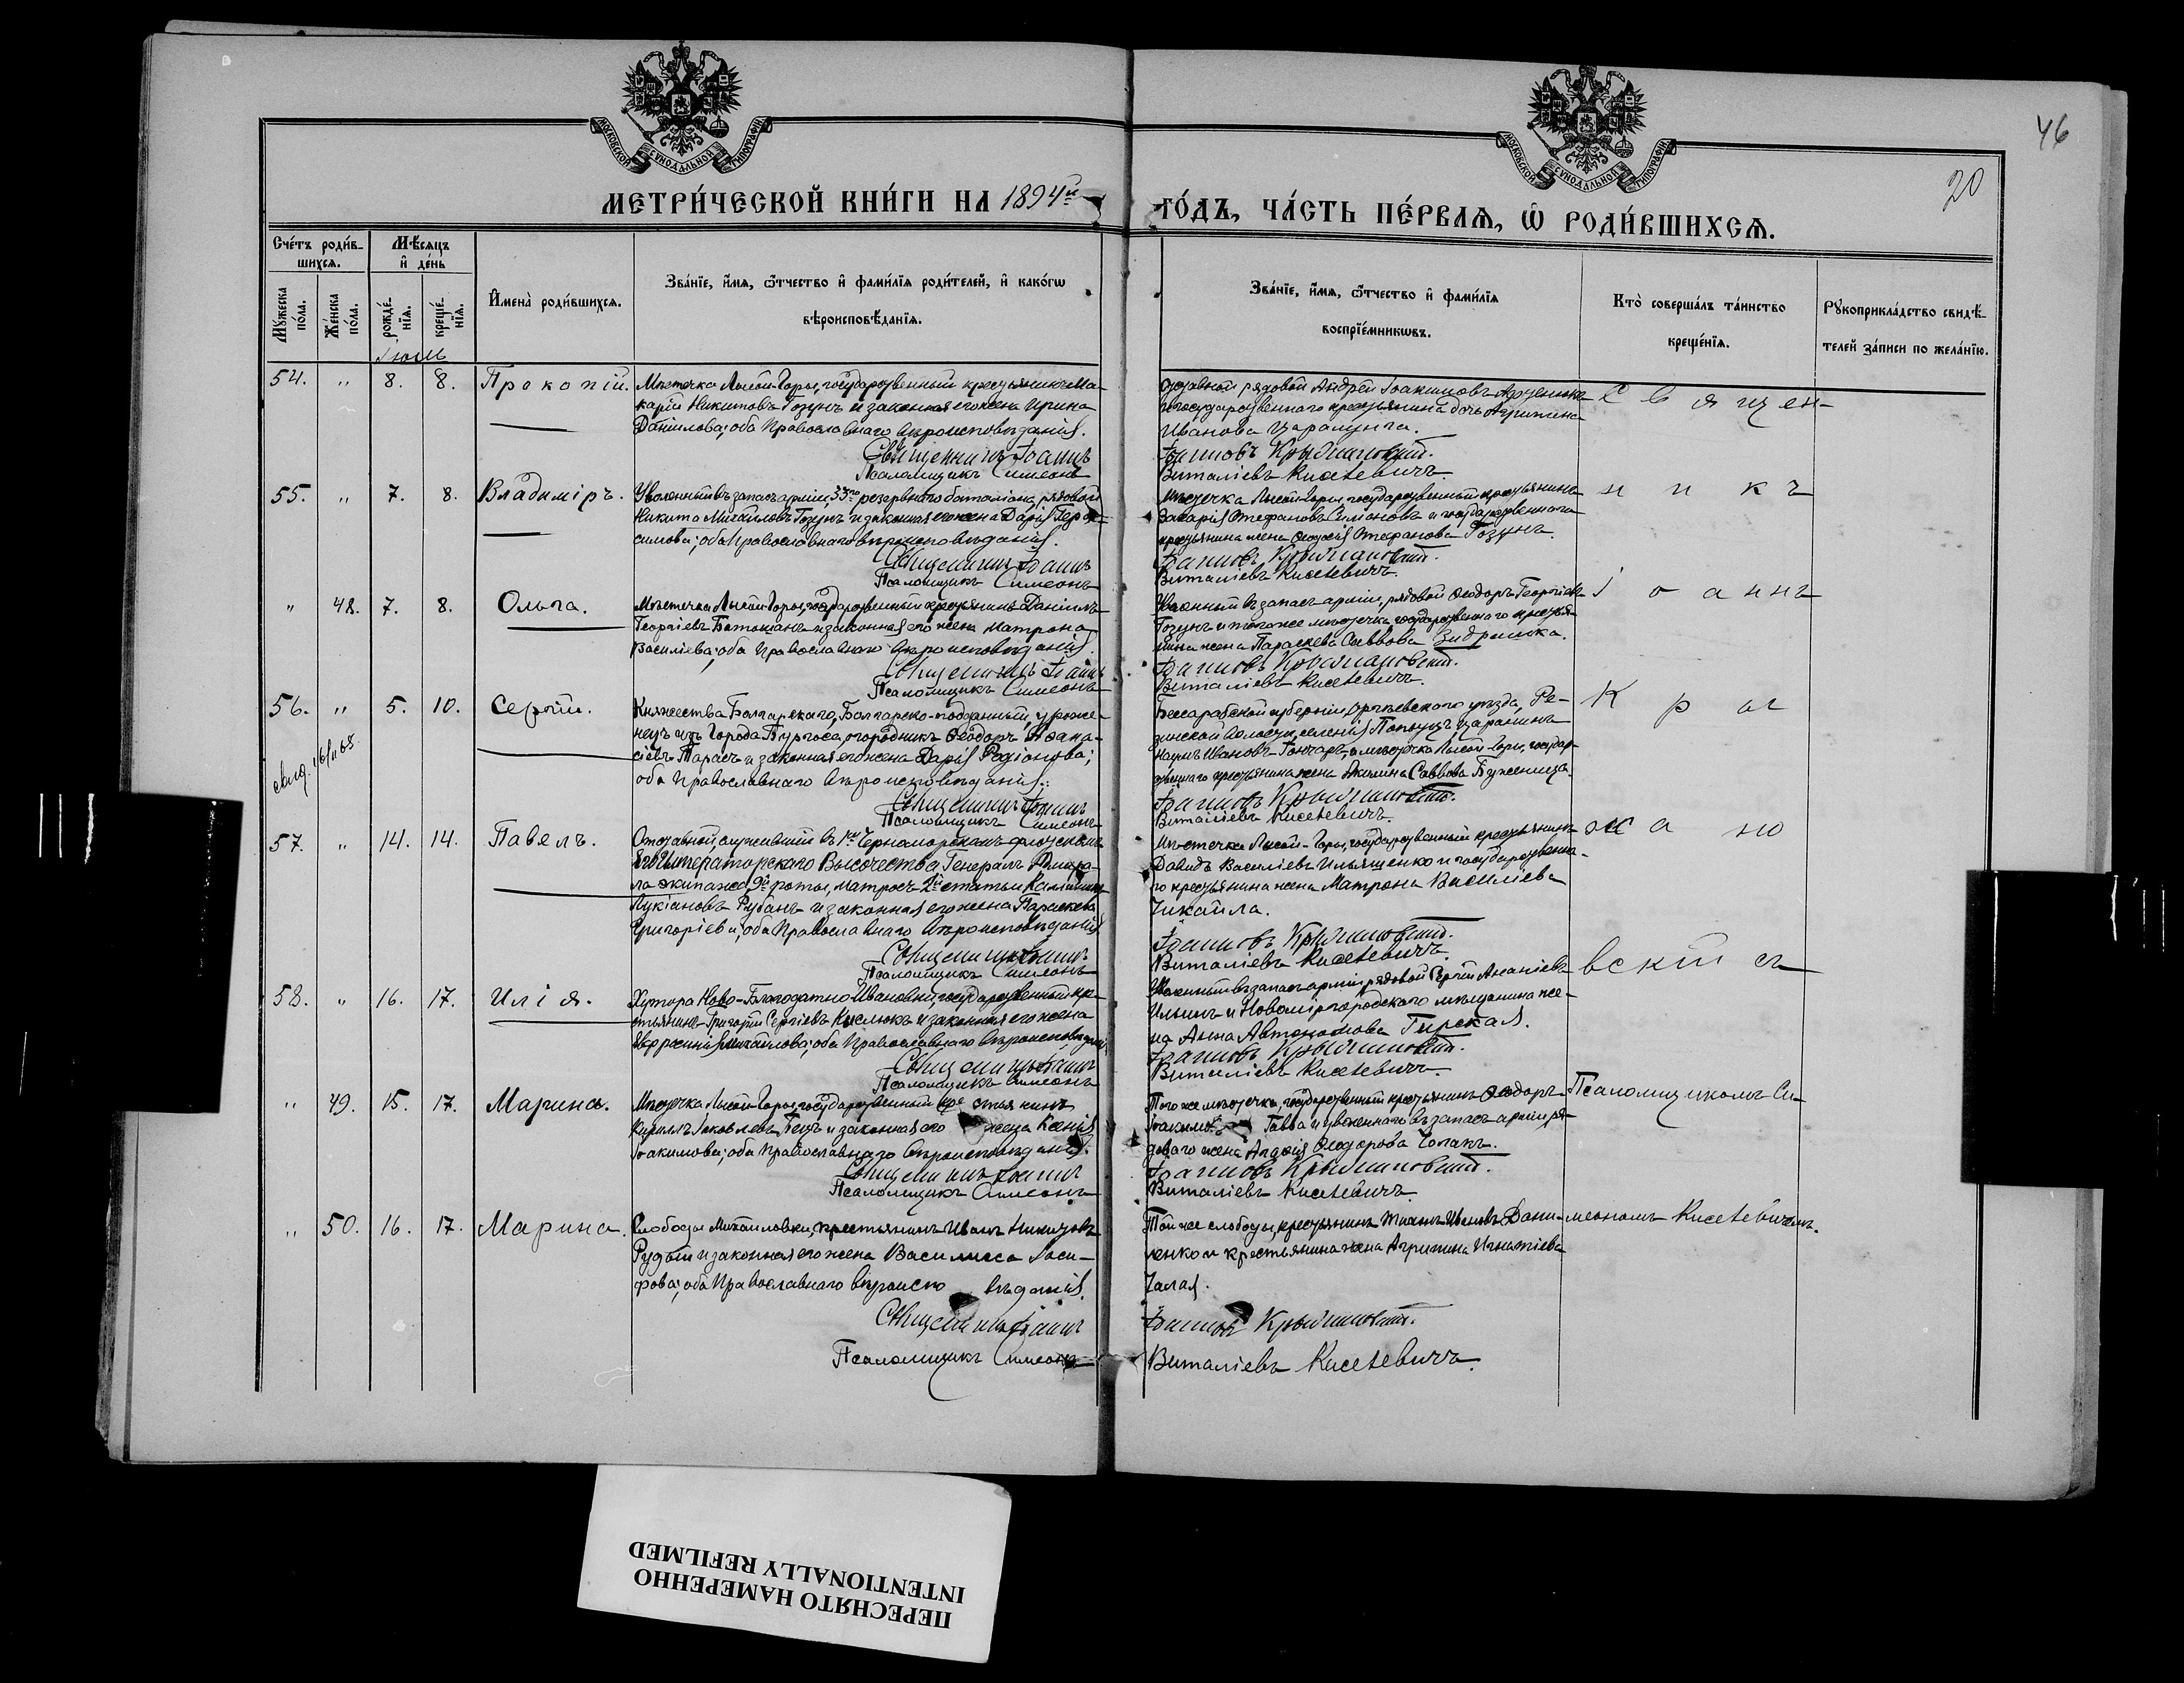 МОСКОВСКОЙ СѴНОДАЛЬНОЙ ТИПОГРАФІИ
МОСКОВСКОЙ СѴНОДАЛЬНОЙ ТИПОГРАФІИ
46
20
МЕТРИ́ЧЕСКОЙ КНИ́ГИ НА 1894й ГО́ДЪ, ЧА́СТЬ ПЕ́РВАѦ, Ѡ҆ РОДИ́ВШИХСѦ.
Сче́тъ роди́в-
шихсѧ.
Мѣ́сѧцъ
и҆ де́нь
Мꙋ́жеска
по́ла.
Же́нска
по́ла.
рожде́-
нїѧ.
креще́-
нїѧ.
И҆мена̀ роди́вшихсѧ.
Зва́нїе, и҆́мѧ, ѻ҆́тчество и҆ фами́лїѧ роди́телей, и҆ како́гѡ
вѣроисповѣ́данїѧ.
Зва́нїе, и҆́мѧ, ѻ҆́тчество и҆ фами́лїѧ
воспрїе́мникѡвъ.
Кто̀ соверша́лъ та́инство
креще́нїѧ.
Рꙋкоприкла́дство свидѣ́-
телей за́писи по жела́нїю.
Іюль
54. " 8. 8. Прокопій.
Мѣстечка Лысой-Горы, государственный крестьянинъ Ма-
карій Никитовъ Гозунъ и законная его жена Ирина
Даніилова; оба Православнаго вѣроисповѣданія.
Священникъ Іоаннъ
Псаломщикъ Симеонъ
Отставной рядовой Андрей Іоакимовъ
и государственнаго крестьянина дочь Агрипина
Иванова Царалунга.
Іоанновъ Крыжановскій.
Виталіевъ Киселевичъ.
55. " 7. 8. Владиміръ.
Уволенный въ запасъ арміи, 33го резервнаго баталіона, рядовой
Никита Михаиловъ Гозунъ и законная его жена Дарія Гера-
симова; оба Православнаго вѣроисповѣданія.
Священникъ Іоаннъ
Псаломщикъ Симеонъ
Мѣстечка Лысой-Горы, государственный крестьянинъ
Захарія Стефановъ Симоновъ и государственнаго
крестьянина жена Стефанова Гозунъ.
Іоанновъ Крыжановскій.
Виталіевъ Киселевичъ.
" 48. 7. 8. Ольга.
Мѣстечка Лысой-Горы, государственный крестьянинъ Даніилъ
Георгіевъ Ботошанъ и законная его жена Матрона
Василіева; оба Православнаго вѣроисповѣданія.
Священникъ Іоаннъ
Псаломщикъ Симеонъ
Уволенный въ запасъ арміи, рядовой Ѳеодоръ Георгіевъ
Гозунъ и того же мѣстечка государственнаго крестья-
нина жена Параскева Саввова
Іоанновъ Крыжановскій.
Виталіевъ Киселевичъ.
56. " 5. 10. Сергій.
свид.
Княжества Болгарскаго, Болгарско-подданный, уроже-
нецъ изъ города Бургоса, огородникъ Ѳеодоръ Аѳана-
сіевъ Тарасъ и законная его жена Дарія Родіонова;
оба Православнаго вѣроисповѣданія.
Священникъ Іоаннъ
Псаломщикъ Симеонъ
Бессарабской губерніи, Оргѣевскаго уѣзда, Ре-
зинской волости, селенія Попоуцъ, царанинъ
Наумъ Ивановъ Гончаръ, и мѣстечка Лысой-Горы, государ-
ственнаго крестьянина жена Акилина Саввова
Іоанновъ Крыжановскій.
Виталіевъ Киселевичъ.
57. " 14. 14. Павелъ.
Отставной, служившій въ 1мъ Черноморскомъ флотскомъ
Его Императорскаго Высочества Генералъ Адмира-
ла экипажа, 9й роты, матросъ 2й статьи
Лукіановъ Рубанъ и законная его жена Параскева
Григоріева; оба Православнаго вѣроисповѣданія
Священникъ Іоаннъ
Псаломщикъ Симеонъ
Мѣстечка Лысой-Горы, государственный крестьянинъ
Давидъ Василіевъ Ильященко и государственна-
го крестьянина жена Матрона Василіева
Чикайла.
Іоанновъ Крыжановскій.
Виталіевъ Киселевичъ.
58. " 16. 17. Илія.
Хутора Ново-Благодатно-Ивановки, государственный кре-
стьянинъ Григорій Сергіевъ Кислюкъ и законная его жена
Евфросинія Михаилова; оба Православнаго вѣроисповѣданія
Священникъ Іоаннъ
Псаломщикъ Симеонъ
Уволенный въ запасъ арміи рядовой Сергій Ананіевъ
Ильинъ и Новомиргородскаго мѣщанина же-
на Анна Автономова Гирская.
Іоанновъ Крыжановскій.
Виталіевъ Киселевичъ.
" 49. 15. 17. Марина.
Мѣстечка Лысой-Горы, государственный кре стьянинъ
Кириллъ Іаковлевъ и законная его жена Ксенія
Іоакимова; оба Православнаго вѣроисповѣданія.
Священникъ Іоаннъ
Псаломщикъ Симеонъ
Того же мѣстечка, государственный крестьянинъ Ѳеодоръ
Іоакимовъ и уволеннаго въ запасъ арміи ря-
доваго жена Ѳеодорова
Іоанновъ Крыжановскій.
Виталіевъ Киселевичъ.
" 50. 16. 17. Марина.
Слободы Михайловки, крестьянинъ Иванъ Никитовъ
Рудый и законная его жена Василисса Іоси-
фова; оба Православнаго вѣроиспо вѣданія.
Священникъ Іоаннъ
Псаломщикъ Симеонъ
Той же слободы, крестьянинъ Ивановъ Дани-
ленко и крестьянина жена Агрипина Игнатіева
Чалая.
Іоанновъ Крыжановскій.
Виталіевъ Киселевичъ.
Священ-
никъ
Іоаннъ
Кры
жано
вскій съ
Псаломщикомъ Си-
меономъ Киселевичемъ.
ПЕРЕСНЯТО НАМЕРЕННО
INTENTIONALLY REFILMED